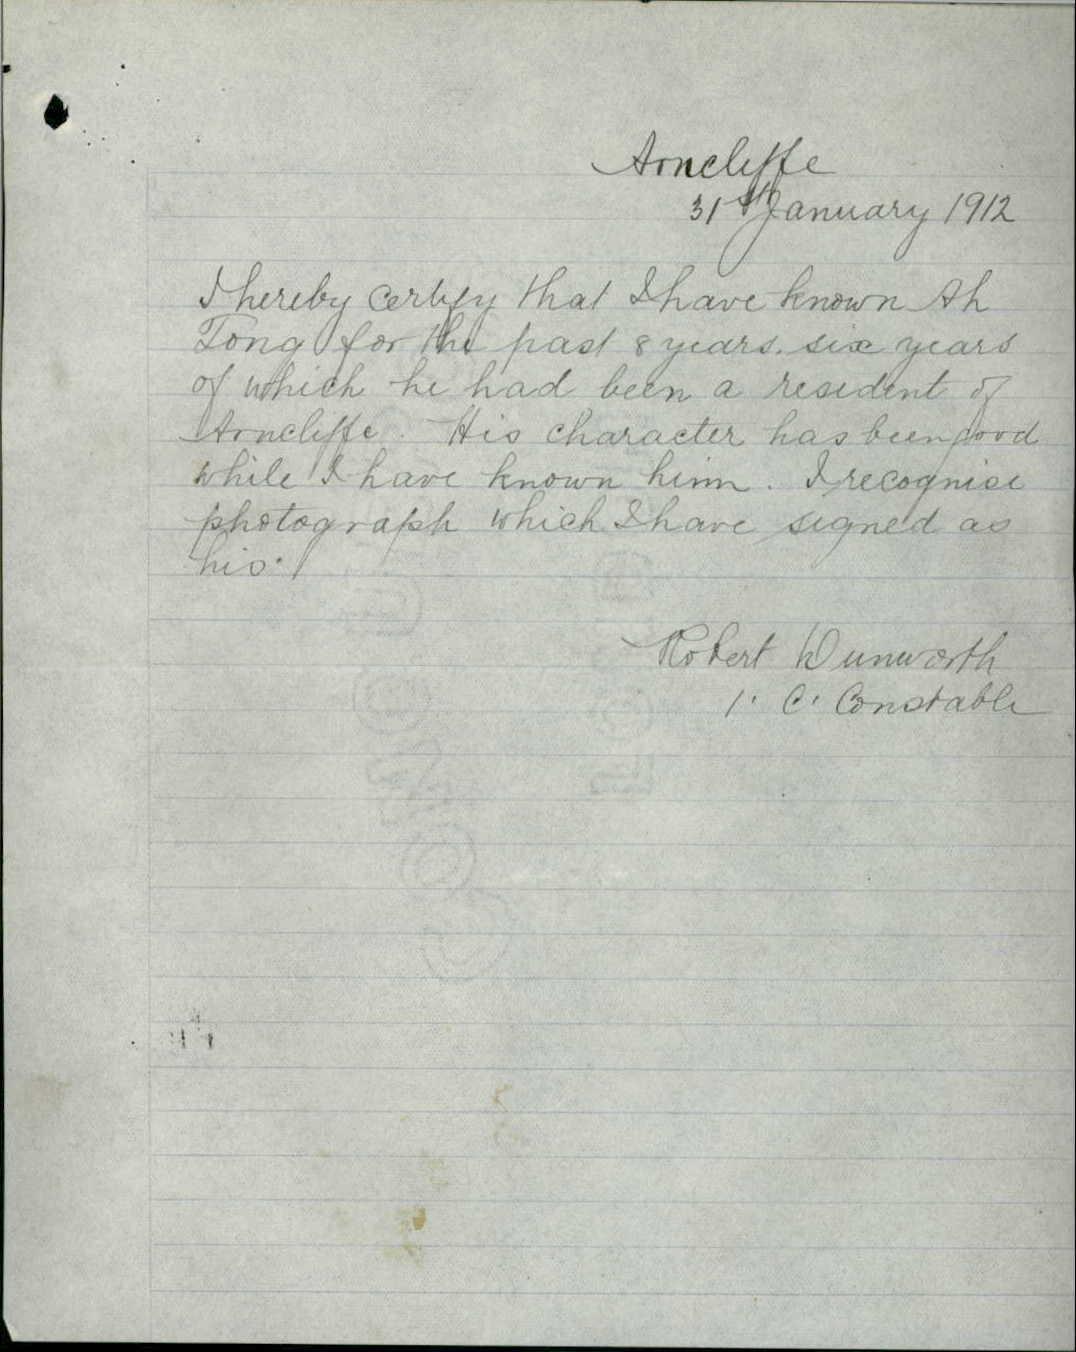 Arncliffe
31st January 1912
I hereby certify that I have known Ah
Tong for the past 8 years. six years
of which he had been a resident of
Arncliffe. His character has been good
while I have known him. I recognise
photograph which I have signed as
his.
Robert Dunworth
1. C. Constable